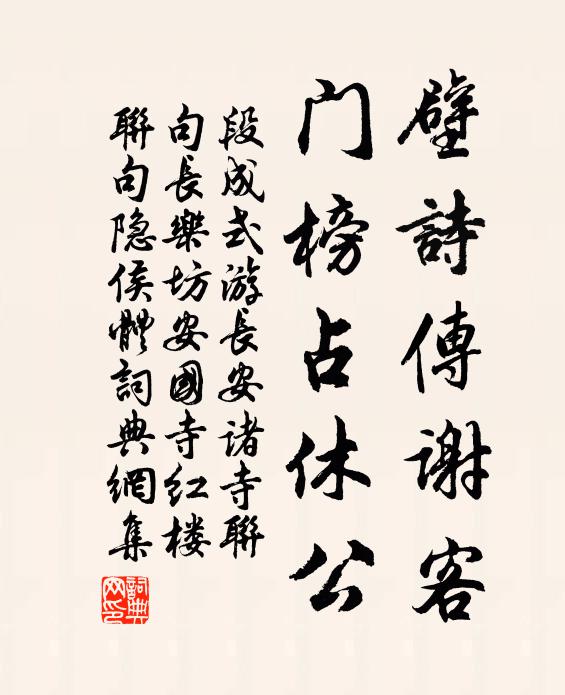 壁詩傳謝客
門榜占休公
段成式游長安諸寺聯
句長樂坊安國寺红楼
聯句隐侯體詞典網集
詞典
网印